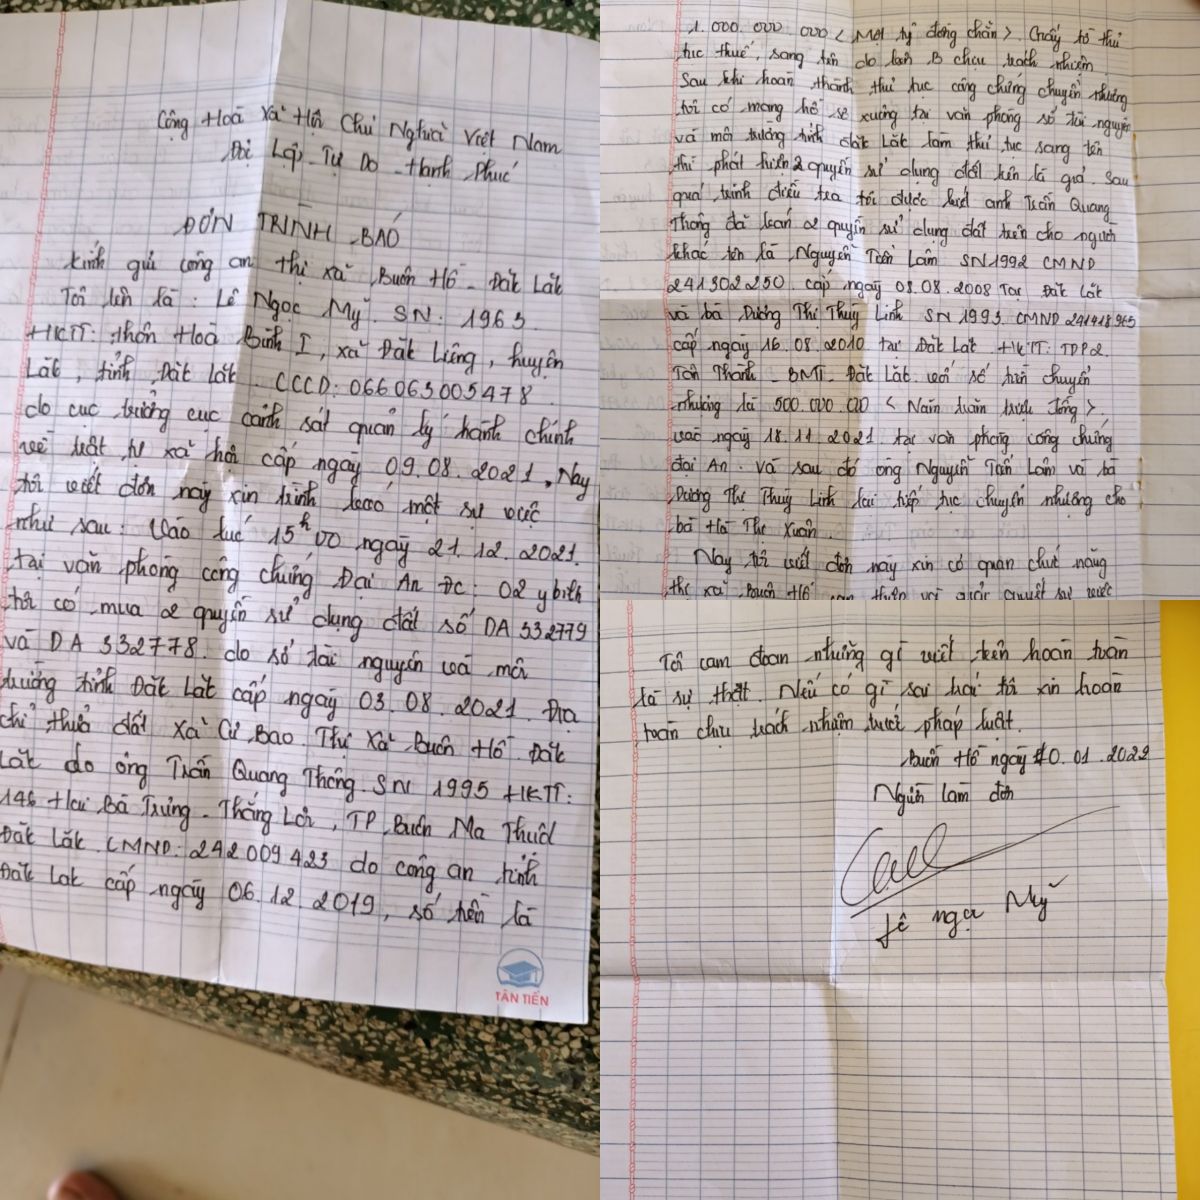 Cộng Hoà Xã Hội Chủ Nghĩa Việt Nam
Độc Lập - Tự Do - Hạnh Phúc
ĐƠN TRÌNH BÁO
Kính gửi công an thị xã Buôn Hồ - Đắk Lắk
Tôi tên là : Lê Ngọc Mỹ. SN : 1963.
HKTT: thôn Hoà Bình I, xã Đắk Liêng, huyện
Lắk, tỉnh Đắk Lắk CCCD: 066063005478.
do cục trưởng cục cảnh sát quản lý hành chính
về trật tự xã hội cấp ngày 09.08.2021. Nay
tôi viết đơn này xin trình báo một sự việc
như sau : Vào lúc 15h00 ngày 21.12.2021.
tại văn phòng công chứng Đại An ĐC: 02 ybith
tôi có mua 2 quyền sử dụng đất số DA 332779
và DA 332778. do sở tài nguyên và môi
trường tỉnh Đắk Lắk cấp ngày 03.08.2021. Địa
chỉ thửa đất Xã Cư Bao. Thị Xã Buôn Hồ. Đắk
Lắk do ông Trần Quang Thông. SN 1995 HKTT:
146 Hai Bà Trưng - Thắng Lợi, TP Buôn Ma Thuột
Đắk Lắk. CMND: 242009423 do công an tỉnh
Đắk Lắk cấp ngày 06.12.2019, số tiền là
TÂN TIẾN
1.000.000.000 < Một tỷ đồng chẵn >. Giấy tờ thủ
tục thuế, sang tên do bên B chịu trách nhiệm.
Sau khi hoàn thành thủ tục công chứng chuyển nhượng
tôi có mang hồ sơ xuống tại văn phòng sở tài nguyên
và môi trường tỉnh Đắk Lắk làm thủ tục sang tên
thì phát hiện 2 quyền sử dụng đất trên là giả. Sau
quá trình điều tra tôi được biết anh Trần Quang
Thông đã bán 2 quyền sử dụng đất trên cho người
khác tên là Nguyễn Tấn Lâm SN 1992 CMND
241302250. cấp ngày 08.08.2008 Tại Đắk Lắk
và bà Dương Thị Thùy Linh SN 1993. CMND 241418965
cấp ngày 16.08.2010 tại Đắk Lắk HKTT: TDP2.
Tân Thành - BMT. Đắk Lắk. với số tiền chuyển
nhượng là 500.000.000 < Năm trăm triệu đồng >.
vào ngày 18.11.2021 tại văn phòng công chứng
đại An. và sau đó ông Nguyễn Tấn Lâm và bà
Dương Thị Thùy Linh lại tiếp tục chuyển nhượng cho
bà Hồ Thị Xuân.
Nay tôi viết đơn này xin cơ quan chức năng
thị xã Buôn Hồ can thiệp và giải quyết sự việc
Tôi cam đoan những gì viết trên hoàn toàn
là sự thật. Nếu có gì sai trái tôi xin hoàn
toàn chịu trách nhiệm trước pháp luật.
Buôn Hồ ngày 10.01.2022
Người làm đơn
Lê ngọc Mỹ